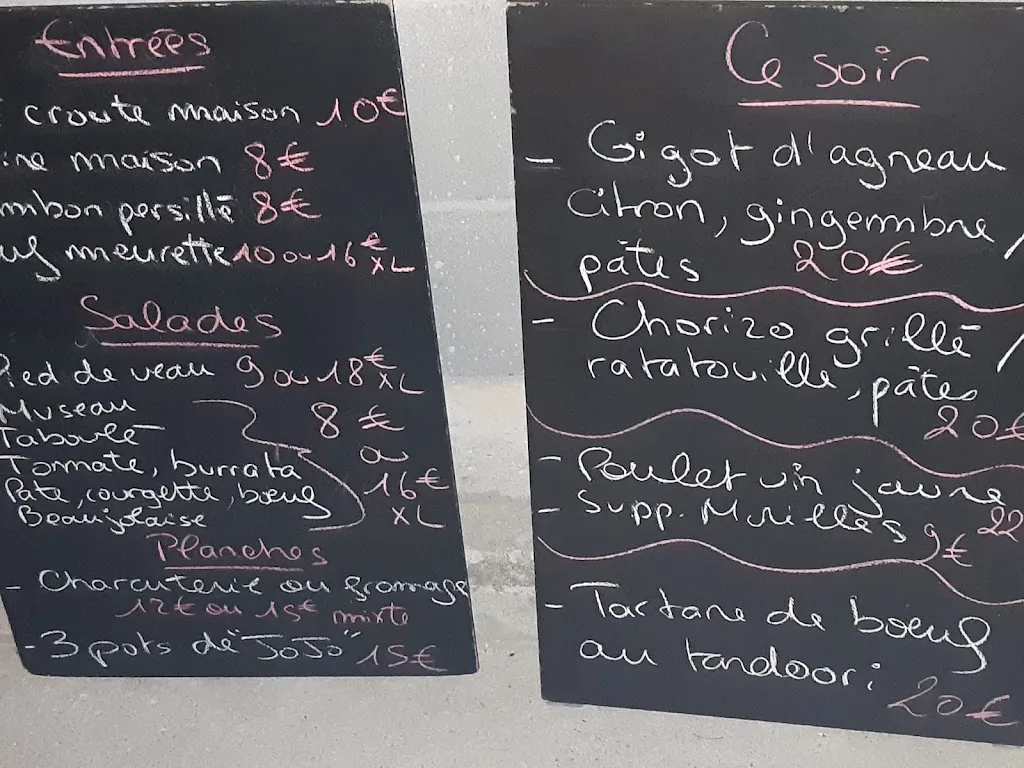 Entrées
croute maison 10€
maison 8€
persillé 8€
meurette 10 ou 16€ XL
Salades
Pied de veau 9 ou 18€ XL
Museau
Taboulé
8€ ou 16€ XL
Tomate, burrata
Pate, courgette, boeuf
Beaujolaise
Planches
- Charcuterie ou fromage
12€ ou 15€ mixte
- 3 pots de "JoJo" 15€
Ce soir
- Gigot d'agneau
Citron, gingembre /
pâtes 20€
- Chorizo grillé /
ratatouille, pâtes
20€
- Poulet vin jaune
22
- Supp. Morilles 9€
- Tartare de boeuf
au tandoori
20€